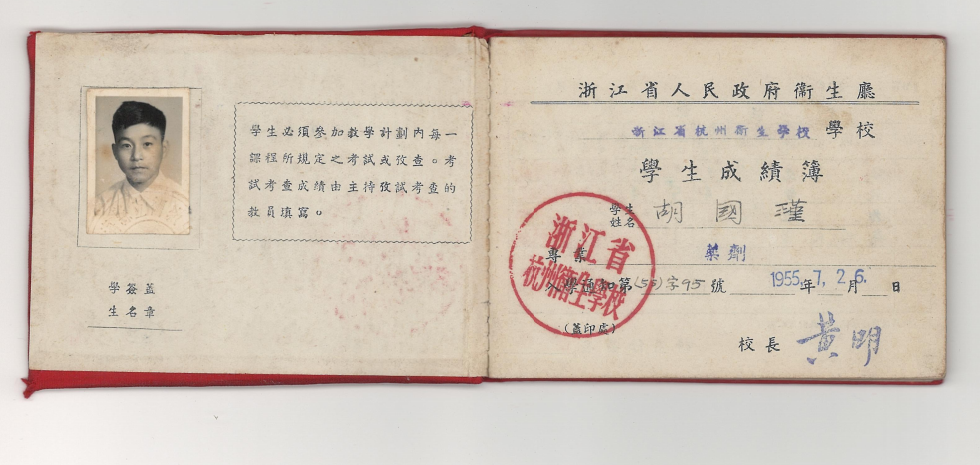 學生必須參加教學計劃內每一
課程所規定之考試或攷查。考
試考查成績由主持攷試考查的
教員填寫。
學簽蓋
生名章
浙江省人民政府衛生廳
浙江省杭州衛生學校 學校
學生成績簿
學生姓名 胡國瑾
專業 薬劑
入學通知第(55)字95號 1955年7月26日
浙江省
杭州衛生學校
(蓋印處)
校長 黃明